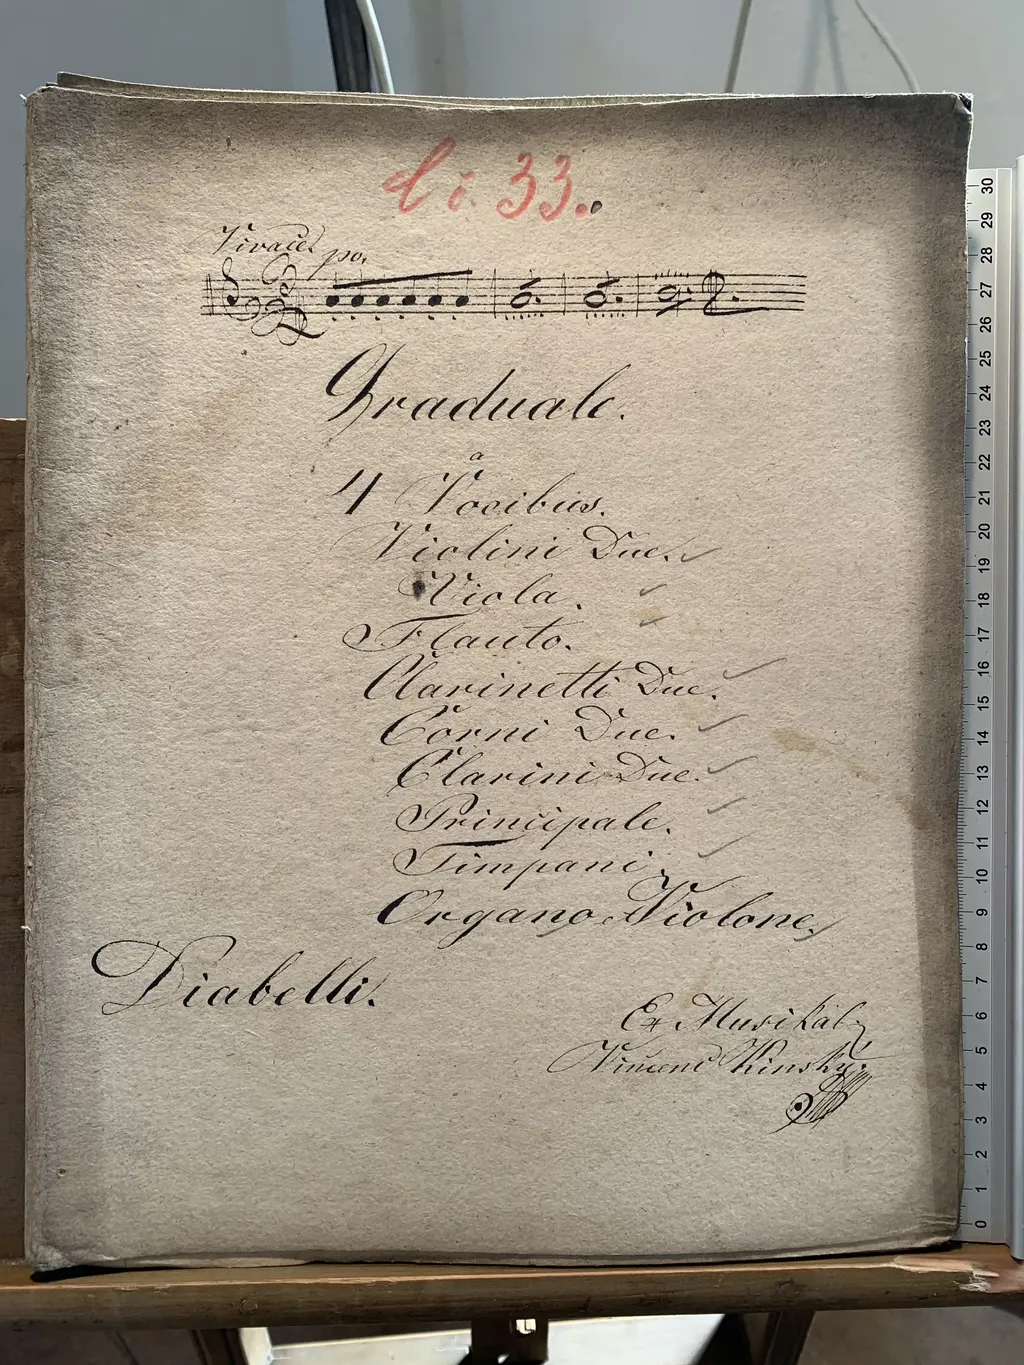 Či. 33.
Vivace
po.
Graduale.
a
4 Vocibus.
Violini Due.
Viola.
Flauto.
Clarinetti Due.
Corni Due.
Clarini Due.
Principale.
Timpani.
Organo e Violone.
Diabelli.
Ex Musikal:
Vincenc Kinský.
30
29
28
27
26
25
24
23
22
21
20
19
18
17
16
15
14
13
12
11
10
9
8
7
6
5
4
3
2
1
0